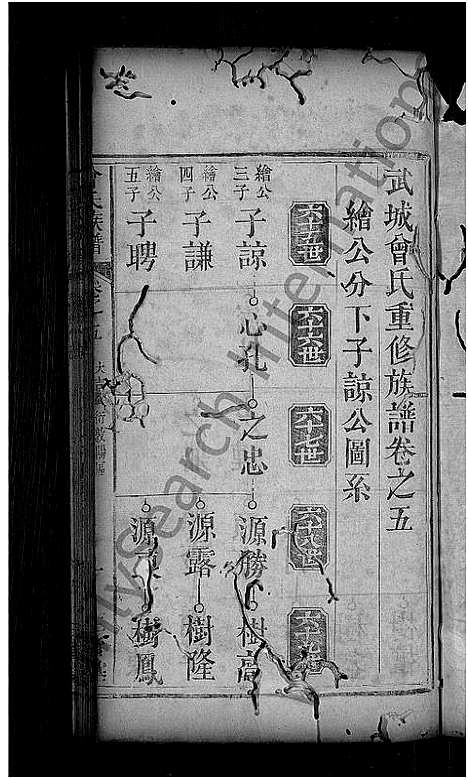 武城曾氏重修族譜卷之五
繪公分下子諒公圖系
六十五世
六十六世
六十七世
六十八世
六十九世
繪公三子 子諒 心孔 之忠 源勝 樹高
繪公四子 子謙 源露 樹隆
繪公五子 子聘 源 樹鳳
氏族譜